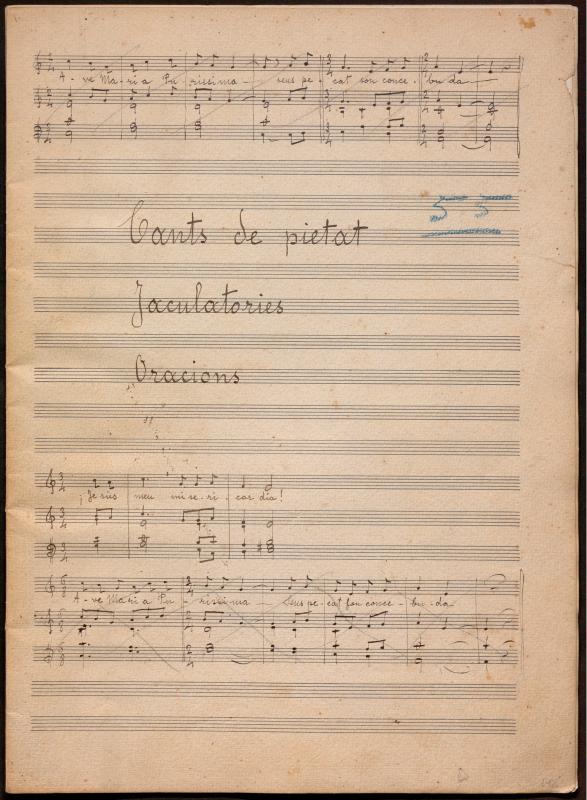 A - ve Ma - ri a Pu - rissima - sens pe - cat son conce - bu da
Cants de pietat
53
Jaculatories
Oracions
¡Je sús meu mi se - ri - cor dia!
A - ve Ma ri a Pu - rissima - Sens pe - cat fou conce - bu - da